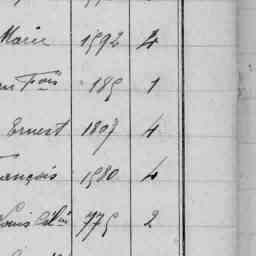 Marie 1592 4
Fois 185 1
Ernest 1807 4
François 1580 4
Louis 775 2